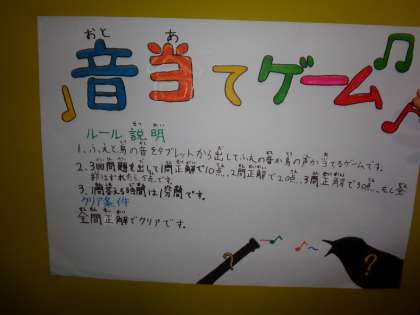 おと あ
音当てゲーム
ルール説明
1、ふえと鳥の音をタブレットから出してふえの音か鳥の声か当てるゲームです。
2、3回問題を出して1問正解で10点、2問正解で20点、3問正解で30点、もし全
部はずれたら5点です。
3、1問答える時間は1分間です。
クリア条件
全問正解でクリアです。
? ?